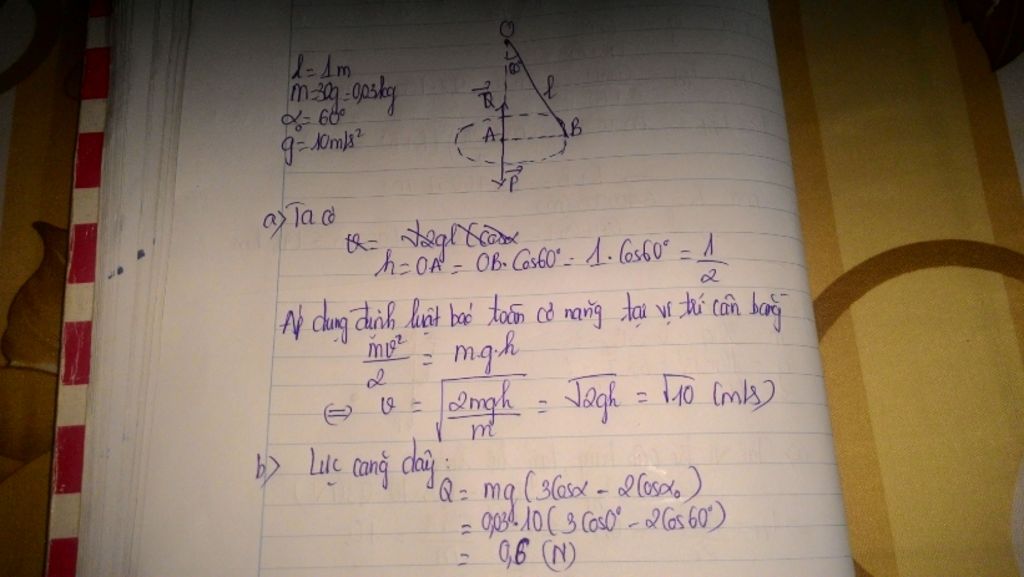 l = 1m
m = 30g = 0,03kg
α₀ = 60°
g = 10m/s²
O
60°
l
Q
A
B
P
a) Ta có
v = √2gl (cosα
h = OA = OB. Cos60° = 1. Cos60° = 1/2
Áp dụng định luật bảo toàn cơ năng tại vị trí cân bằng
mv²/2 = m.g.h
⇔ v = √(2mgh/m) = √2gh = √10 (m/s)
b) Lực căng dây:
Q = mg (3Cosα - 2Cosα₀)
= 0,03.10 (3Cos0° - 2Cos60°)
= 0,6 (N)